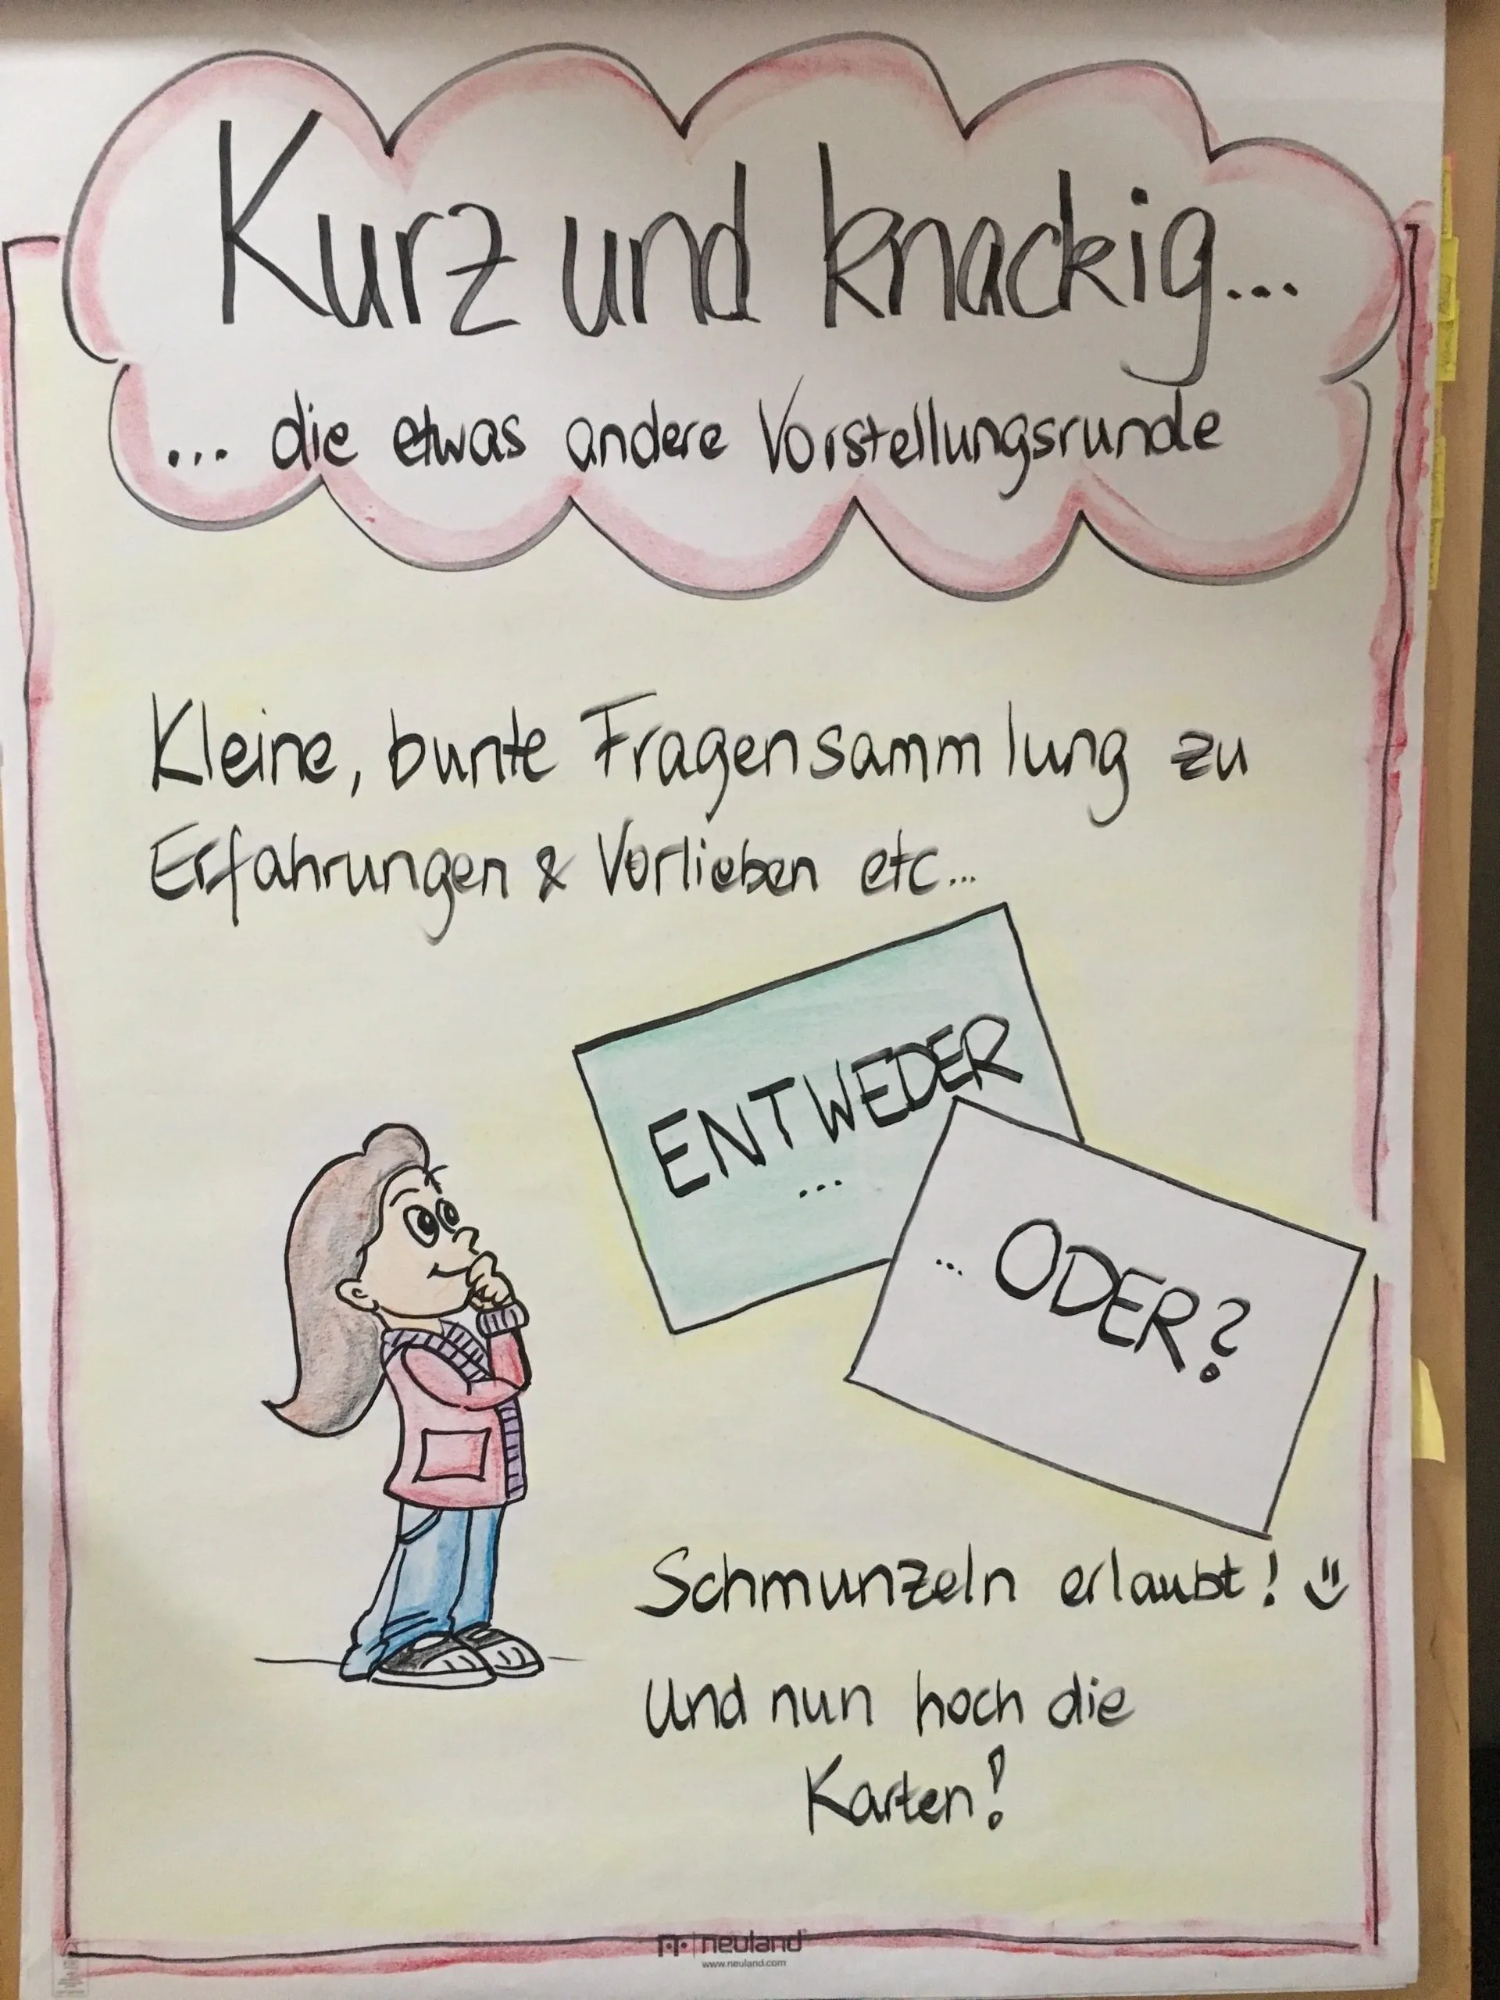 Kurz und knackig...
... die etwas andere Vorstellungsrunde
Kleine, bunte Fragensammlung zu
Erfahrungen & Vorlieben etc...
ENTWEDER
...
... ODER?
Schmunzeln erlaubt!
Und nun hoch die
Karten!
neuland
www.neuland.com